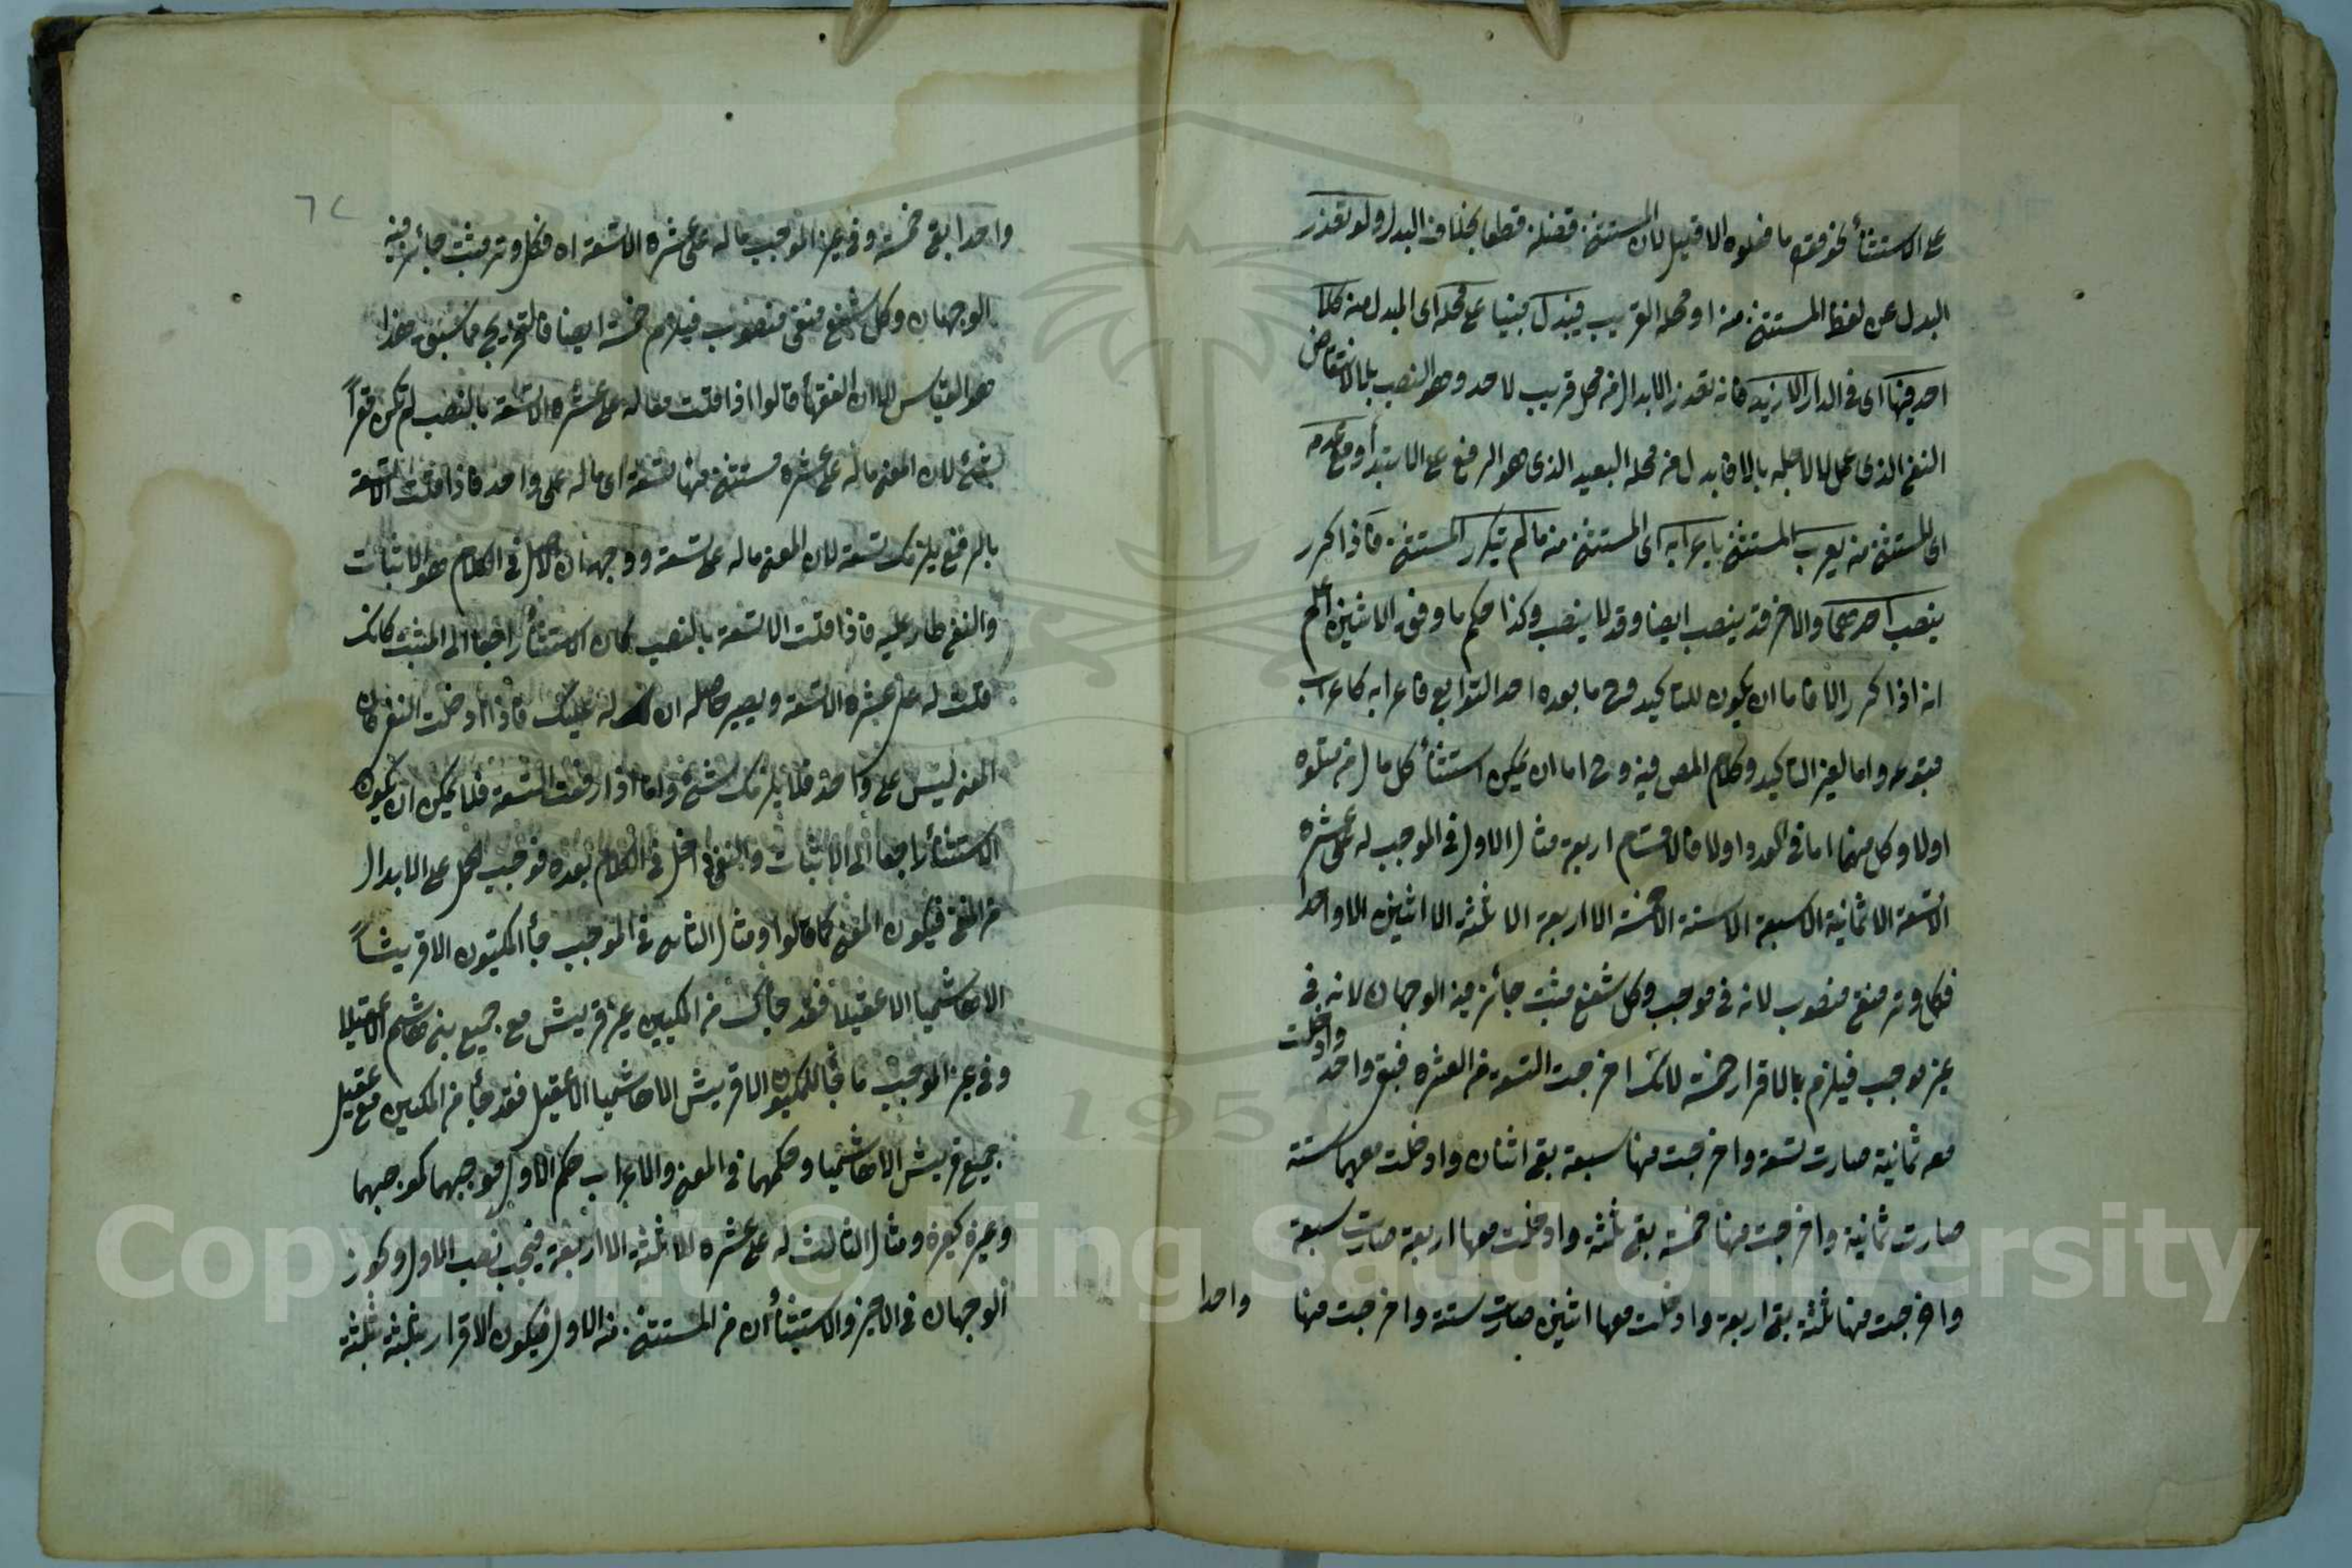 على الاستثناء نحو فعلوه ما فعلوه الا قليل لان المستثنى فضلة قطعا بخلاف البدل ولو تعذر
البدل عن لفظ المستثنى منه او محله القريب فيبدل مبنيا على محله اى المبدل منه كلا
احد فيها اى فى الدار الا زيد فانه تعذر الابدال من محل قريب لاحد وهو النصب بلا لانتقاض
النفى الذى عمل لا لاجله بالا فابدل من محله البعيد الذى هو الرفع على الابتداء ومع تقدمه
اى المستثنى منه يعرب المستثنى باعرابه اى المستثنى منه ما لم يتكرر المستثنى فاذا كرر
ينصب احدهما والاخر قد ينصب ايضا وقد لا ينصب وكذا حكم ما فوق الاثنين اعلم
انه اذا كرر الا فاما ان يكون للتاكيد وح ما بعده احد التوابع فاعرابه كاعراب
متبوعه واما لغير التاكيد وكلام المص فيه وح اما ان يمكن استثناء كل تال من متلوه
اولا وكل منهما اما فى العدد اولا فالاقسام اربعة مثال الاول فى الموجب له على عشرة
الا تسعة الا ثمانية الا سبعة الا ستة الا خمسة الا اربعة الا ثلثة الا اثنين الا واحدا
فكل وتر منفى منصوب لانه فى موجب وكل شفع مثبت جائز فيه الوجهان لانه فى
غير موجب فيلزم بالاقرار خمسة لانك اخرجت التسعة من العشرة فبقى واحد وادخلت
معه ثمانية صارت تسعة واخرجت منها سبعة بقى اثنان وادخلت معهما ستة
صارت ثمانية واخرجت منها خمسة بقى ثلثة وادخلت معها اربعة صارت سبعة
واخرجت منها ثلثة بقى اربعة وادخلت معها اثنين صارت ستة واخرجت منها
واحدا
٦٢
واحدا بقى خمسة وفى غير الموجب ما له على عشرة الا تسعة اه فكل وتر مثبت جائز فيه
الوجهان وكل شفع منفى منصوب فيلزم خمسة ايضا فالتخريج مما سبق هذا
هو القياس الا ان الفقهاء قالوا اذا قلت ما له على عشرة الا تسعة بالنصب لم تكن مقرا
بشئ لان المعنى ما له على عشرة مستثنى منها تسعة اى ما له على واحد فاذا قلت الا تسعة
بالرفع يلزمك تسعة لان المعنى ما له على تسعة ووجهه ان الاصل فى الكلام هو الاثبات
والنفى طار عليه فاذا قلت الا تسعة بالنصب كان الاستثناء راجعا الى المثبت كانك
قلت له على عشرة الا تسعة ويصير حاصله ان له عليك فاذا ادخلت النفى كان
المعنى ليس على واحد فلا يلزمك شئ واما اذا رفعت التسعة فلا يمكن ان يكون
الاستثناء راجعا الى الاثبات والنفى داخل فى الكلام بعده فوجب الحمل على الابدال
من النفى فيكون المعنى كما قالوا ومثال الثانى فى الموجب جاء المكيون الا قريشا
الا هاشميا الا عقيلا فقد جاءك من المكيين غير قريش مع جميع بنى هاشم الا عقيلا
وفى غير الموجب ما جاء المكيون الا قريش الا هاشميا الا عقيل فقد جاء من المكيين مع عقيل
جميع قريش الا هاشميا وحكمهما فى المعنى والاعراب حكم الاول موجبهما كموجبهما
وغيره كغيره ومثال الثالث له على عشرة الا ثلثة الا اربعة فيجب نصب الاول ويجوز
الوجهان فى الاخر والاستثناء ان من المستثنى منه الاول فيكون الاقرار بثلثة ثلثة
Copyright © King Saud University
1957